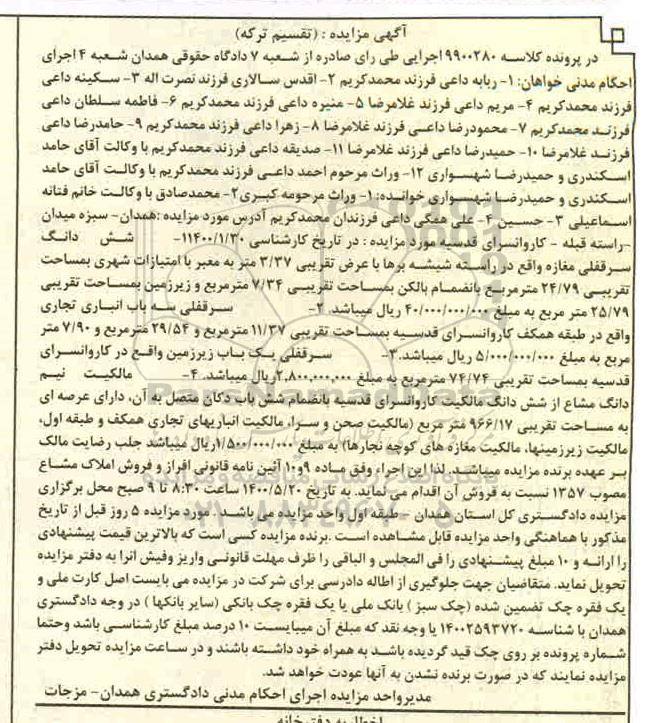 آگهی مزایده : (تقسیم ترکه)
در پرونده کلاسه ۹۹۰۰۲۸۰ اجرایی طی رای صادره از شعبه ۷ دادگاه حقوقی همدان شعبه ۴ اجرای
احکام مدنی خواهان: ۱- ربابه داعی فرزند محمدکریم ۲- اقدس سالاری فرزند نصرت اله ۳- سکینه داعی
فرزند محمدکریم ۴- مریم داعی فرزند غلامرضا ۵- منیره داعی فرزند محمدکریم ۶- فاطمه سلطان داعی
فرزند محمدکریم ۷- محمودرضا داعی فرزند غلامرضا ۸- زهرا داعی فرزند محمدکریم ۹- حامدرضا داعی
فرزند غلامرضا ۱۰- حمیدرضا داعی فرزند غلامرضا ۱۱- صدیقه داعی فرزند محمدکریم با وکالت آقای حامد
اسکندری و حمیدرضا شهسواری ۱۲- وراث مرحوم احمد داعی فرزند محمدکریم با وکالت آقای حامد
اسکندری و حمیدرضا شهسواری خوانده: ۱- وراث مرحومه کبری ۲- محمدصادق با وکالت خانم فتانه
اسماعیلی ۳- حسین ۴- علی همگی داعی فرزندان محمدکریم آدرس مورد مزایده :همدان- سبزه میدان
-راسته قبله - کاروانسرای قدسیه مورد مزایده : در تاریخ کارشناسی ۱۴۰۰/۱/۳۰ ۱- شش دانگ
سرقفلی مغازه واقع در راسته شیشه برها با عرض تقریبی ۳/۳۷ متر به معبر با امتیازات شهری بمساحت
تقریبی ۲۴/۷۹ مترمربع بانضمام بالکن بمساحت تقریبی ۷/۳۴ مترمربع و زیرزمین بمساحت تقریبی
۲۵/۷۹ متر مربع به مبلغ ۴۰/۰۰۰/۰۰۰/۰۰۰ ریال میباشد. ۲- سرقفلی سه باب انباری تجاری
واقع در طبقه همکف کاروانسرای قدسیه بمساحت تقریبی ۱۱/۳۷ مترمربع و ۲۹/۵۴ مترمربع و ۷/۹۰ متر
مربع به مبلغ ۵/۰۰۰/۰۰۰/۰۰۰ ریال میباشد.۳- سرقفلی یک باب زیرزمین واقع در کاروانسرای
قدسیه بمساحت تقریبی ۷۴/۷۴ مترمربع به مبلغ ۲,۸۰۰,۰۰۰,۰۰۰ ریال میباشد. ۴- مالکیت نیم
دانگ مشاع از شش دانگ مالکیت کاروانسرای قدسیه بانضمام شش باب دکان متصل به آن، دارای عرصه ای
به مساحت تقریبی ۹۶۶/۱۷ متر مربع (مالکیت صحن و سرا، مالکیت انباریهای تجاری همکف و طبقه اول،
مالکیت زیرزمینها، مالکیت مغازه های کوچه نجارها) به مبلغ ۱/۵۰۰/۰۰۰/۰۰۰ریال میباشد جلب رضایت مالک
بر عهده برنده مزایده میباشد. لذا این اجراء وفق ماده ۹و۱۰ آئین نامه قانونی افراز و فروش املاک مشاع
مصوب ۱۳۵۷ نسبت به فروش آن اقدام می نماید. به تاریخ ۱۴۰۰/۵/۲۰ ساعت ۸:۳۰ تا ۹ صبح محل برگزاری
مزایده دادگستری کل استان همدان - طبقه اول واحد مزایده می باشد . مورد مزایده ۵ روز قبل از تاریخ
مذکور با هماهنگی واحد مزایده قابل مشاهده است .برنده مزایده کسی است که بالاترین قیمت پیشنهادی
را ارائه و ۱۰ مبلغ پیشنهادی را فی المجلس و الباقی را ظرف مهلت قانونی واریز وفیش انرا به دفتر مزایده
تحویل نماید. متقاضیان جهت جلوگیری از اطاله دادرسی برای شرکت در مزایده می بایست اصل کارت ملی و
یک فقره چک تضمین شده (چک سبز ) بانک ملی یا یک فقره چک بانکی (سایر بانکها ) در وجه دادگستری
همدان با شناسه ۱۴۰۰۲۵۹۳۷۲۰ یا وجه نقد که مبلغ آن میبایست ۱۰ درصد مبلغ کارشناسی باشد وحتما
شماره پرونده بر روی چک قید گردیده باشد به همراه خود داشته باشند و در ساعت مزایده تحویل دفتر
مزایده نمایند که در صورت برنده نشدن به آنها عودت خواهد شد.
مدیرواحد مزایده اجرای احکام مدنی دادگستری همدان- مزجات
اخطار به دفترخانه